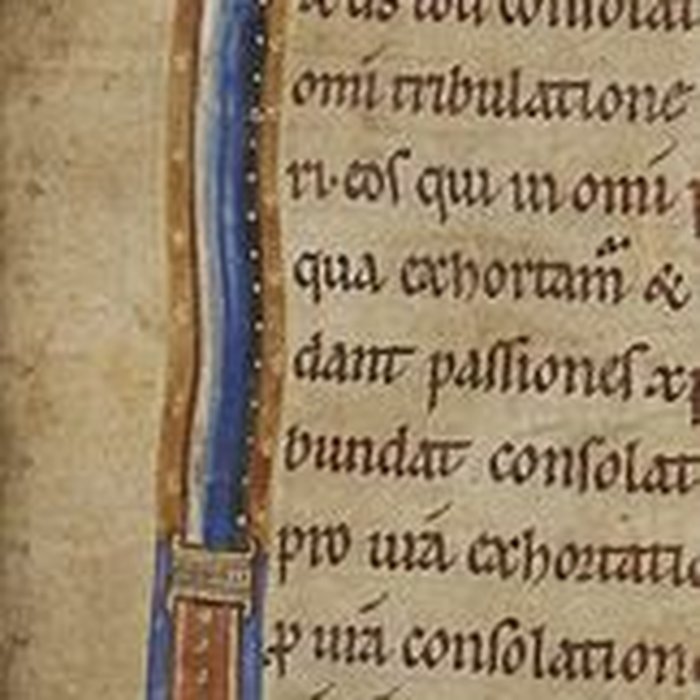 omī tribulatione
ri·eoſ qui in omī
qua exhortam̃ &
dant paſſioneſ xp
bundat conſolat
pro urā exhortatio
ꝓ urā conſolation